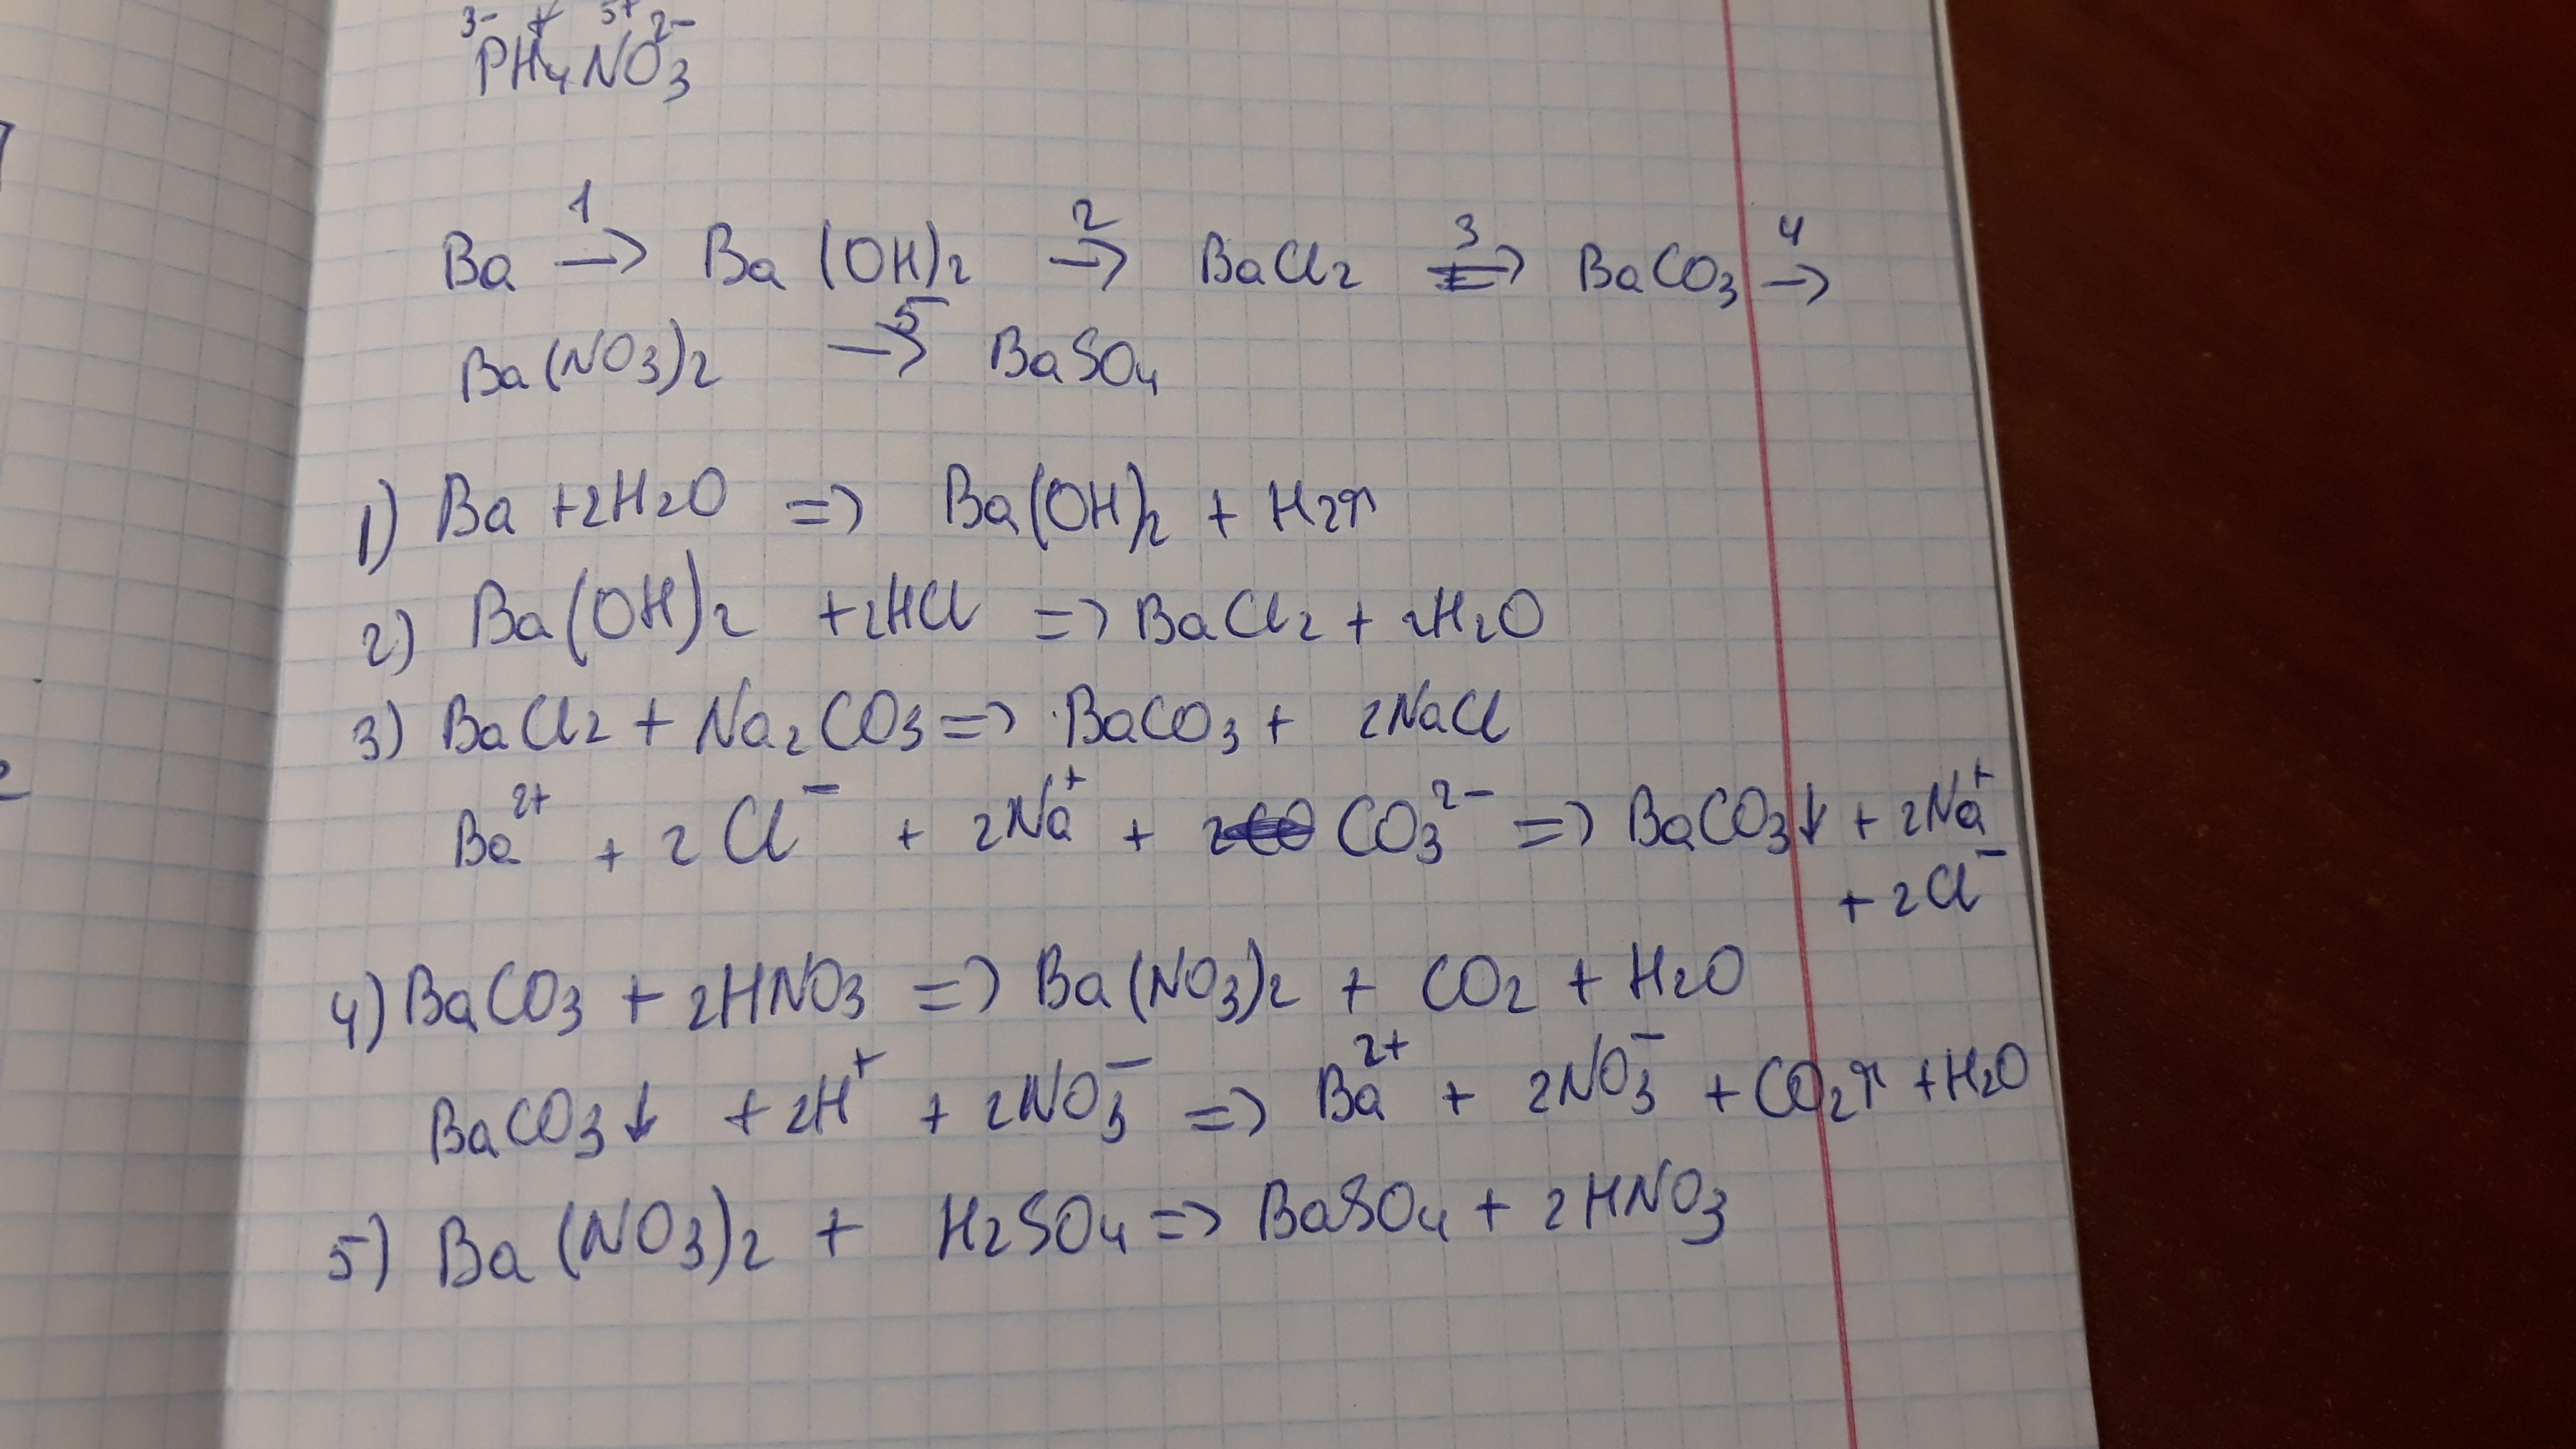 3- + 5+ 2-
PH4NO3
1 2 3 4
Ba → Ba (OH)2 → BaCl2 → BaCO3 →
5
Ba(NO3)2 → BaSO4
1) Ba +2H2O => Ba(OH)2 + H2↑
2) Ba(OH)2 +2HCl => BaCl2 + 2H2O
3) BaCl2 + Na2CO3 => BaCO3 + 2NaCl
Ba2+ + 2Cl- + 2Na+ + CO3 2- => BaCO3↓ + 2Na+
+ 2Cl-
4) BaCO3 + 2HNO3 => Ba(NO3)2 + CO2 + H2O
BaCO3↓ + 2H+ + 2NO3- => Ba2+ + 2NO3- + CO2↑ + H2O
5) Ba (NO3)2 + H2SO4 => BaSO4 + 2HNO3